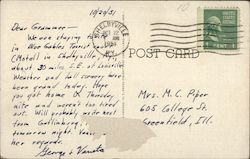 10/20/51
Dear Grammer —
We are staying
in Blue Gables Tourist
(Motel) in Shelbyville, Ky.
about 30 miles S.E. of Louisville
Weather and fall scenery have
been grand today. Hope
you got home O.K. Thursday
nite and weren't too tired
out. Will probably write next
from Gatlinburg,
tomorrow night.
her regards.
George & Vaneta
SHELBYVILLE
POST CARD
Mrs. M. C. Piper
605 College St.
Greenfield, Ill.
1¢